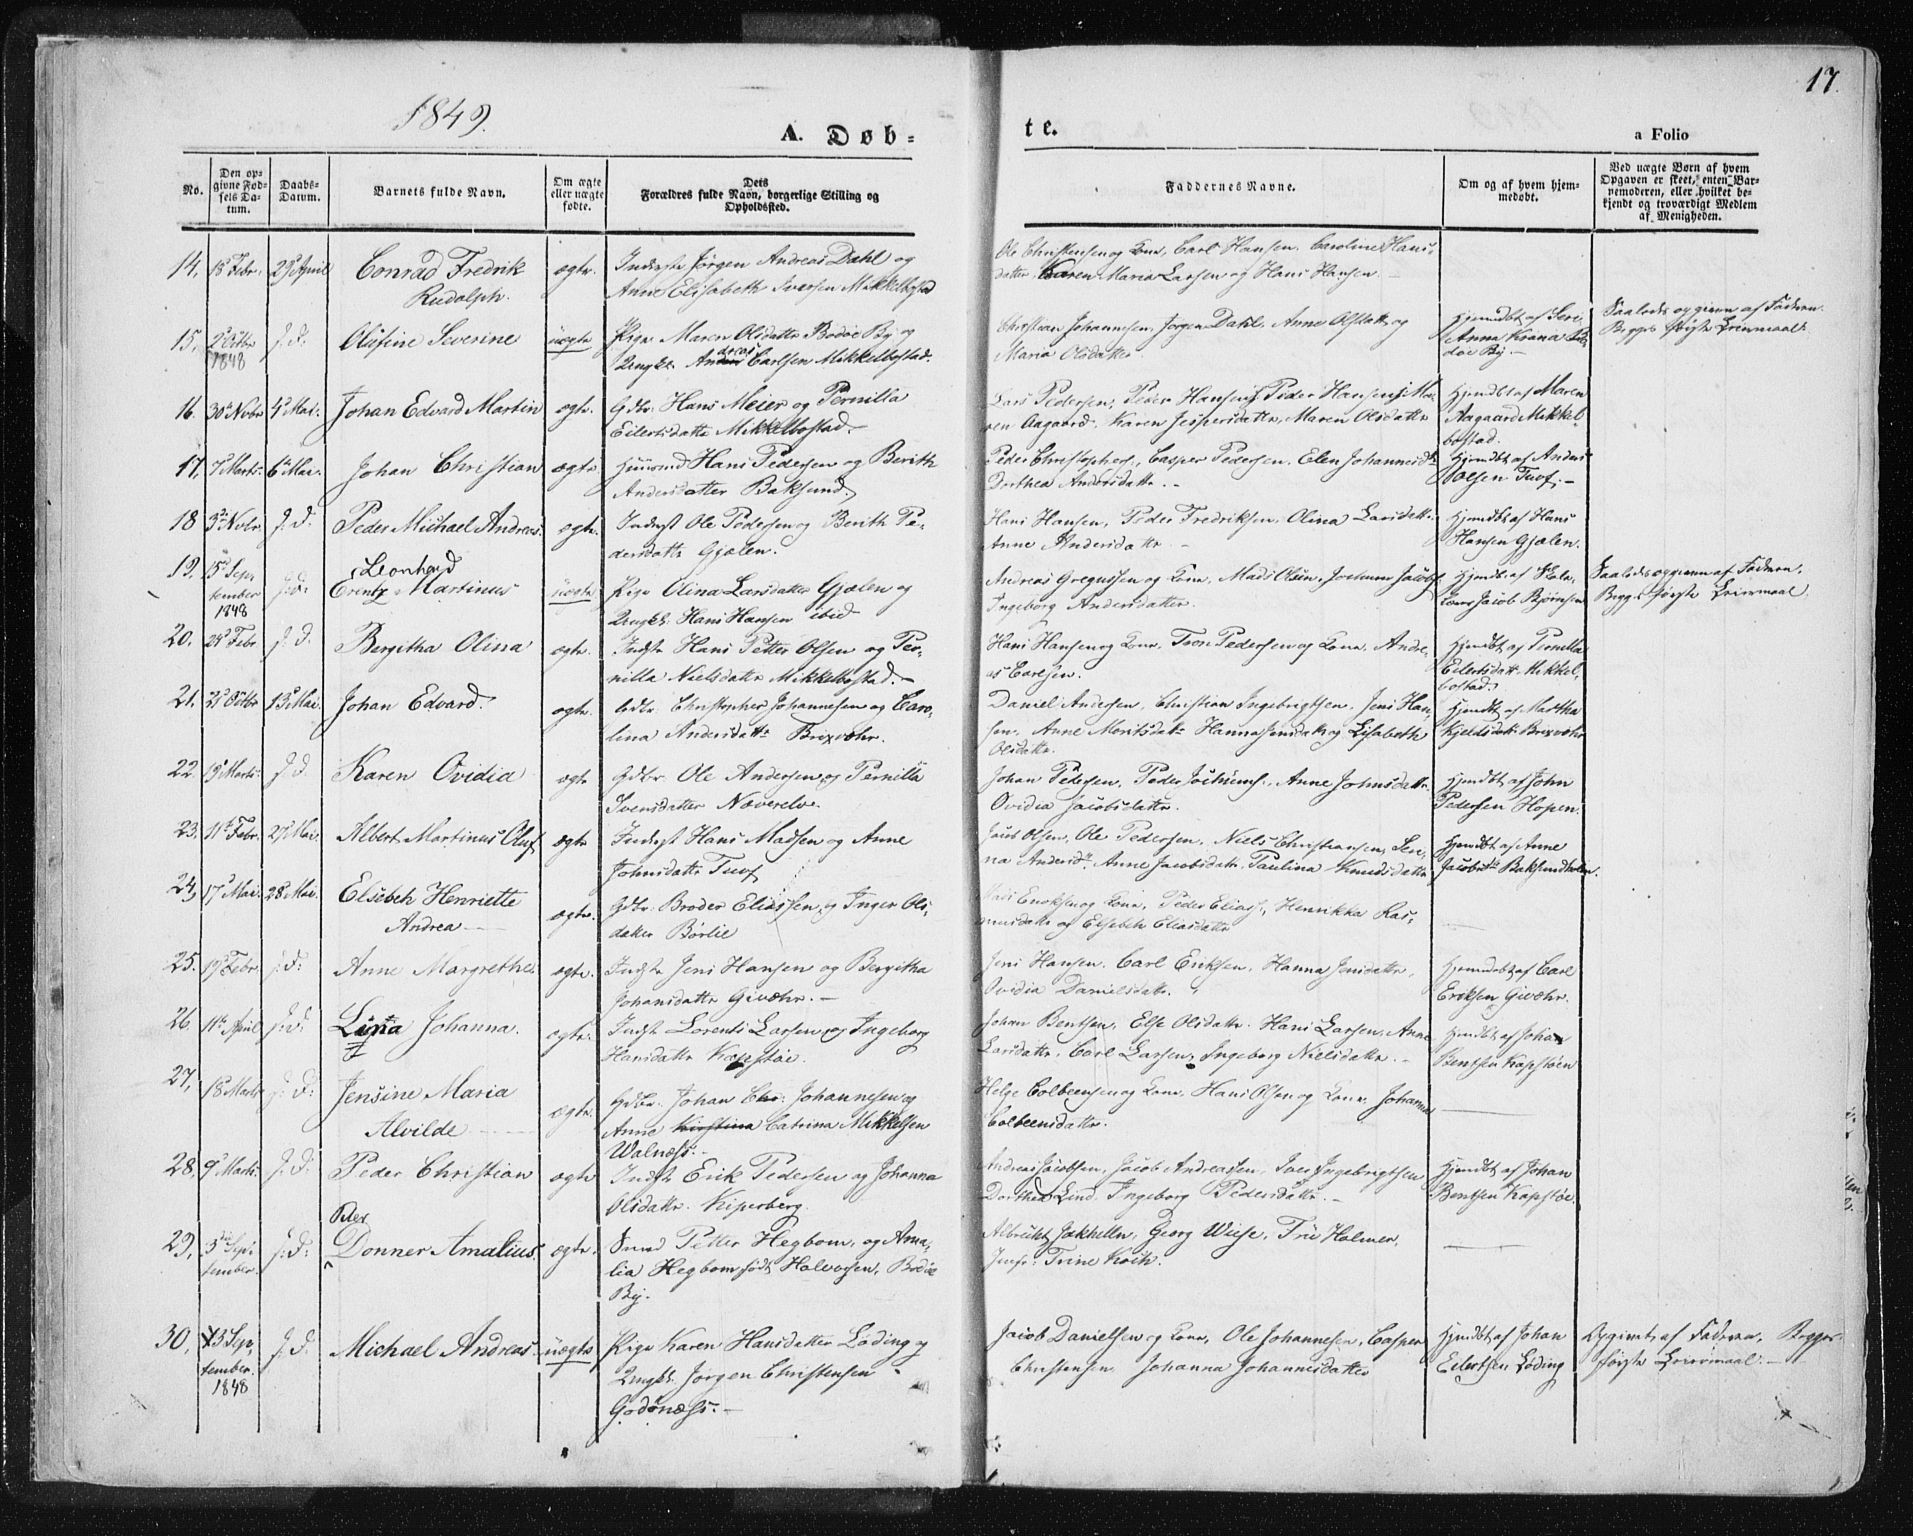 1849.
17.
A. Døb-
te.
a Folio
No.
Den op-
givne Fød-
sels Da-
tum.
Daabs-
Datum.
Barnets fulde Navn.
Om ægte
eller uægte
fødte.
Dets
Forældres fulde Navn, borgerlige Stilling og
Opholdssted.
Faddernes Navne.
Om og af hvem hjem-
medøbt.
Ved uægte Børn af hvem
Opgaven er skeet, enten Bar-
nemoderen, eller hvilket be-
kjendt og troværdigt Medlem
af Menigheden.
14. 18 Febr. 29 April Conrad Fredrik ægte. Inderste Jørgen Andreas Dahl og
Rudolph. Anne Elisabeth Iversen Mikkelbostad
Ole Christensen og Kone, Carl Hansen, Caroline Hans-
datter, Karen Maria Larsen og Hans Hansen.
15. 2 Octbr J. D. Olufine Severine uægte Pige Maren Olsdatter Bodøe By og
1848 Ungk. Andreas Carlsen Mikkelbostad.
Christian Johannesen, Jørgen Dahl, Anne Olsdatter og
Maria Olsdatter.
Hjemdbt af
Anna Krana Bo-
døe By.
Saaledes opgiven af Faderen.
Begges første Leiermaal.
16. 30 Novbr 4 Mai. Johan Edvard Martin ægte. Gdbr. Hans Meier og Pernilla
Eilertsdatter Mikkelbostad.
Lars Pedersen, Peder Hansen, Peder Hansen, Ma-
ren Aagaard, Karen Jespersdatter, Maren Olsdatter
Hjemdbt af Maren
Aagaard Mikkel-
bostad.
17. 7 Marts 6 Mai. Johan Christian ægte. Huusmd Hans Pedersen og Berith
Andersdatter Baksund.
Peder Christophers., Casper Pedersen, Elen Johannesdtr
Dorthea Andersdatter.
Hjemdbt af Anders
Olsen Tuv.
18 3 Novbr J. D. Peder Michael Andreas. ægte. Inderst Ole Pedersen og Berith Pe-
dersdatter Gjælen.
Hans Hansen, Peder Fredriksen, Olina Larsdatter
Anne Andersdatter
Hjemdbt af Hans
Hansen Gjælen.
19. 15 Sep- J. D. Leonhard
tember Erentz Martinus uægte Pige Olina Larsdatter Gjælen og
1848 Ungk. Hans Hansen ibid
Andreas Gregussen og Kone, Mads Olsen, Jochum Jacobs.
Ingeborg Andersdatter.
Jacob Bjørnsen
Saaledes opgiven af Faderen.
Begges første Leiermaal.
20. 24 Febr J. D. Bergitha Olina ægte. Indst Hans Petter Olsen og Per-
nilla Nielsdatter Mikkelbostad.
Hans Hansen og Kone, Tron Pedersen og Kone, Andre-
as Carlsen.
Hjemdbt af Pernilla
Eilertsdatt. Mikkel-
bostad.
21. 21 Octbr 13 Mai. Johan Edvard. ægte. Gdbr. Christopher Johannesen og Caro-
lina Andersdattr Brixvohr.
Daniel Andersen, Christian Ingebrigtsen, Jens Han-
sen, Anne Montsdatr Hanna Jensdatr og Lisabeth
Olsdatter.
Hjemdbt af Martha
Kjeldsdatr Brixvohr
22. 13 Marts J. D. Karen Ovidia ægte Gdbr Ole Andersen og Pernilla
Svensdatter Næverelv.
Johan Pedersen, Peder Jochums., Anne Johnsdatter
Ovidia Jacobsdatter.
Hjemdbt af John
Pedersen Hopen.
23. 11 Febr. 27 Mai. Albert Martinus Oluf ægte Inderst Hans Madsen og Anne
Johnsdattr Tuv
Jacob Olsen, Ole Pedersen, Niels Christiansen, Len-
na Andersdr. Anne Jacobsdatr Paulina Knudsdatter
Hjemdbt af Anne
Jacobsdtr Baksundholm.
24. 17 Mai. 28 Mai. Elsebeh Henriette ægte. Gdbr. Broder Eliassen og Inger Ols-
Andrea datter Børlie
Mads Enoksen og Kone, Peder Elias., Henrikka Ras-
musdattr og Elsebeh Eliasdattr
25. 19 Febr. J. D. Anne Margrethe. ægte. Indst Jens Hansen og Bergitha
Johansdattr Givæhr.
Jens Hansen, Carl Eriksen, Hanna Jensdattr,
Ovidia Danielsdatr.
Hjemdøbt af Carl
Eriksen Givæhr.
26. 11 April J. D. Lina Johanna. ægte. Indst Lorents Larsen og Ingeborg
Hansdattr Kapstøe.
Johan Bentsen, Else Olsdattr, Hans Larsen, Anne
Larsdattr, Carl Larsen, Ingeborg Nielsdattr.
Hjemdbt af Johan
Bentsen Kapstøen
27. 18 Marts J. D. Jensine Maria ægte. Gdbr. Johan Chr. Johannesen og
Alvilde Anne Kirstina Catrina Mikkelsen
Walnæss.
Helge Colbeensen og Kone, Hans Olsen og Kone, Johanna
Colbeensdattr.
28. 9 Marts. J. D. Peder Christian ægte Indst Erik Pedersen og Johanna
Olsdattr. Kiperberg.
Andreas Jacobsen, Jacob Andreassen, Ingebrigtsen
Dorthea Lind, Ingeborg Pedersdattr.
Hjemdbt af Johan
Bentsen Kapstøe.
29. 3 Sep- J. D. Peter
tember. Donner Amalius. ægte. Smed Petter Hegbom, og Ama-
lia Hegbom født Halvorsen, Bodøe
By.
Albrecht Jakhelln, Georg Wiese, Fru Holmer,
Jomfr. Trine Koch.
30. 13 Sep- J. D. Michael Andreas uægte Pige Karen Hansdatter Løding og
tember. Ungk. Jørgen Christensen
1848 Godønæss.
Jacob Danielsen og Kone, Ole Johannesen, Casper
Christensen, Johanna Johannesdatter
Hjemdbt af Johan
Eilertsen Løding
Opgivet af Faderen, Begges
første Leiermaal.